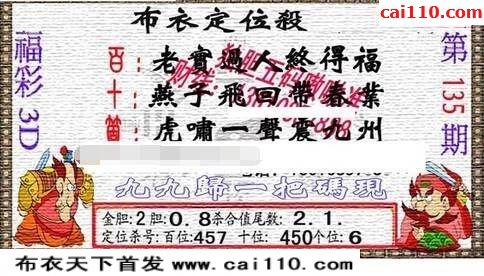 cai110.com
布衣定位殺
福彩3D
第135期
百:老實過人終得福
十:燕子飛回帶春業
個:虎嘯一聲震九州
九九歸一把碼現
金胆:2胆:0.8杀合值尾数:2.1.
定位杀号:百位:457 十位:450个位:6
布衣天下首发 www.cai110.com